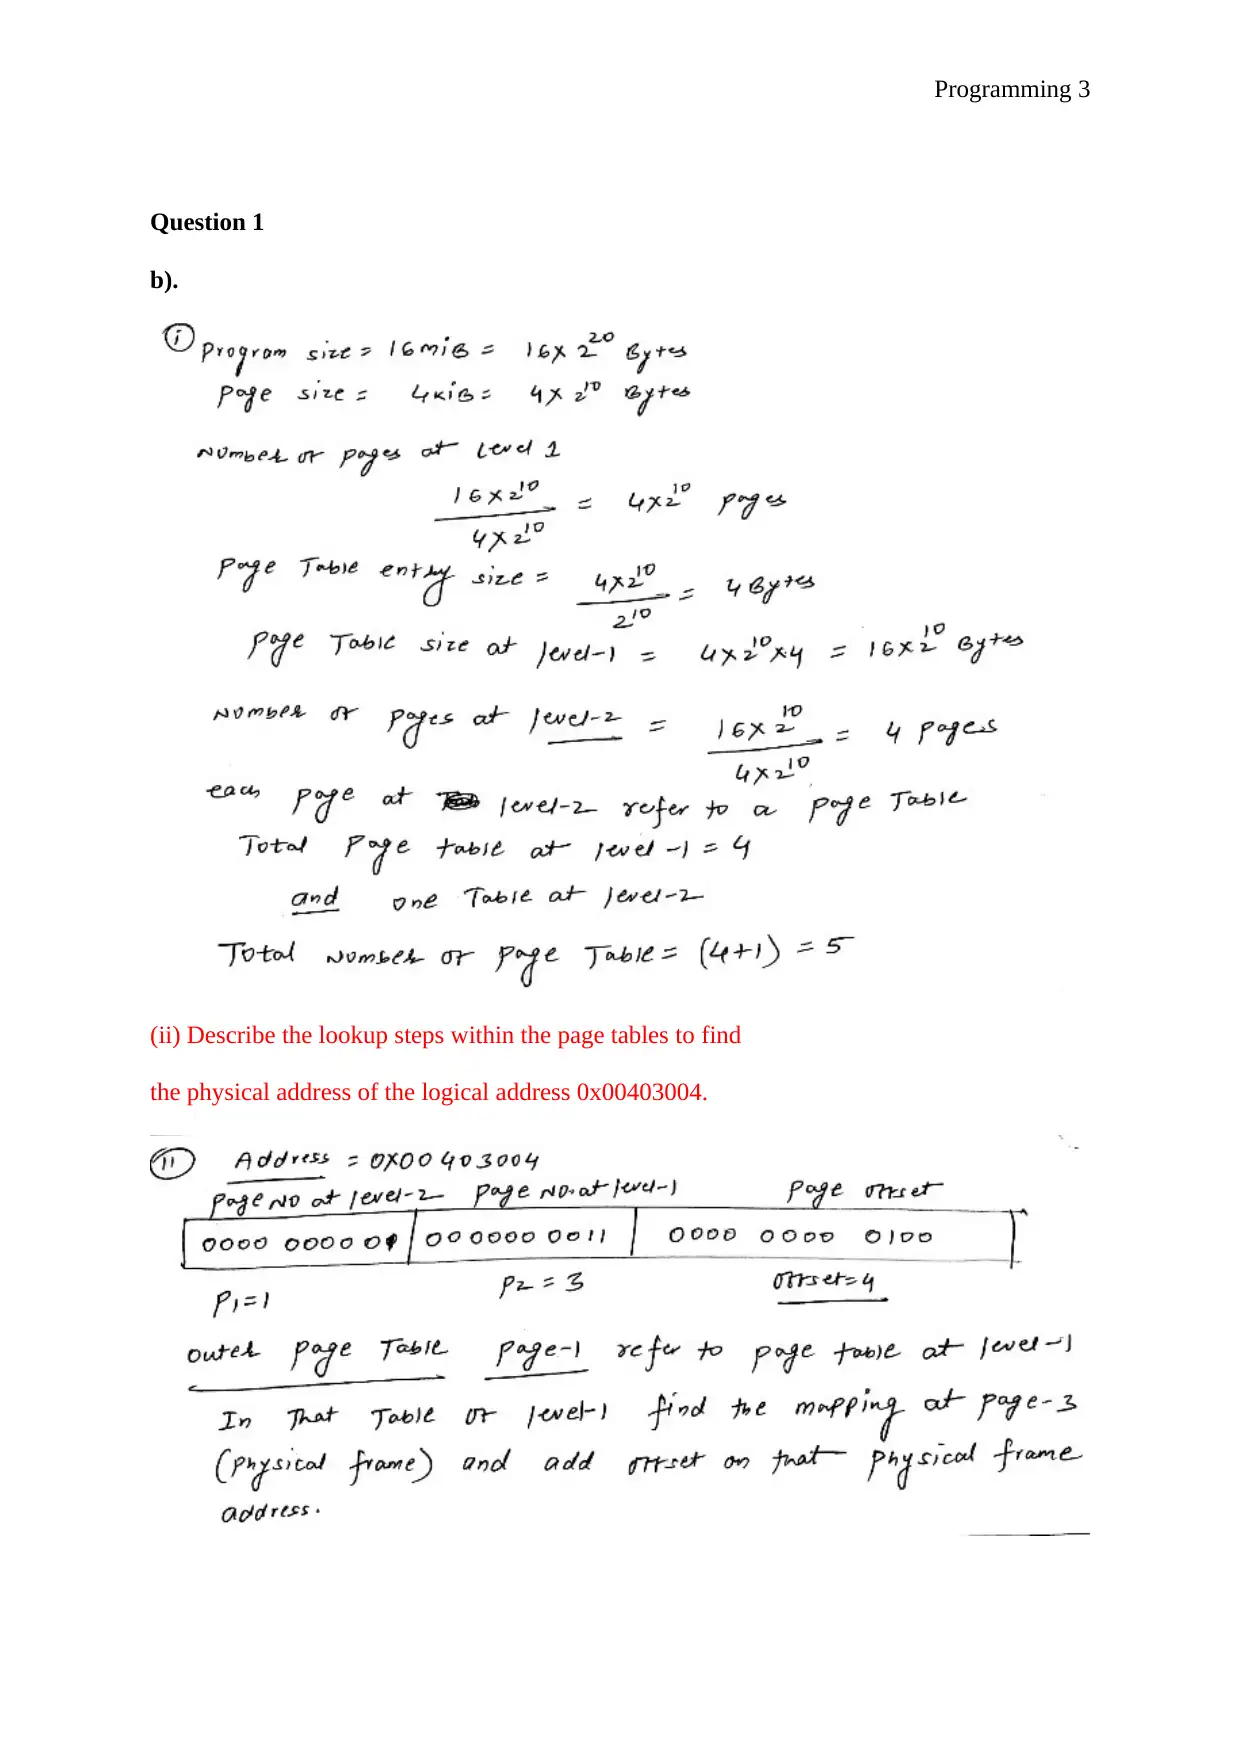 Programming 3
Question 1
b).
(i) Program size = 16 MiB = 16 x 2^20 Bytes
Page size = 4 KiB = 4 x 2^10 Bytes
Number of pages at Level 1
16 x 2^10 / 4 x 2^10 = 4 x 2^10 pages
Page Table entry size = 4 x 2^10 / 2^10 = 4 Bytes
Page Table size at level-1 = 4 x 2^10 x 4 = 16 x 2^10 Bytes
Number of pages at level-2 = 16 x 2^10 / 4 x 2^10 = 4 pages
each page at level-2 refer to a page Table
Total Page table at level-1 = 4
and one Table at level-2
Total Number of page Table = (4+1) = 5
(ii) Describe the lookup steps within the page tables to find
the physical address of the logical address 0x00403004.
(ii) Address = 0X00403004
page No at level-2 page No. at level-1 page offset
0000 0000 01 00 0000 0011 0000 0000 0100
P1 = 1 P2 = 3 offset = 4
outer page Table page-1 refer to page table at level-1
In That Table of level-1 find the mapping at page-3
(physical frame) and add offset on that physical frame
address.